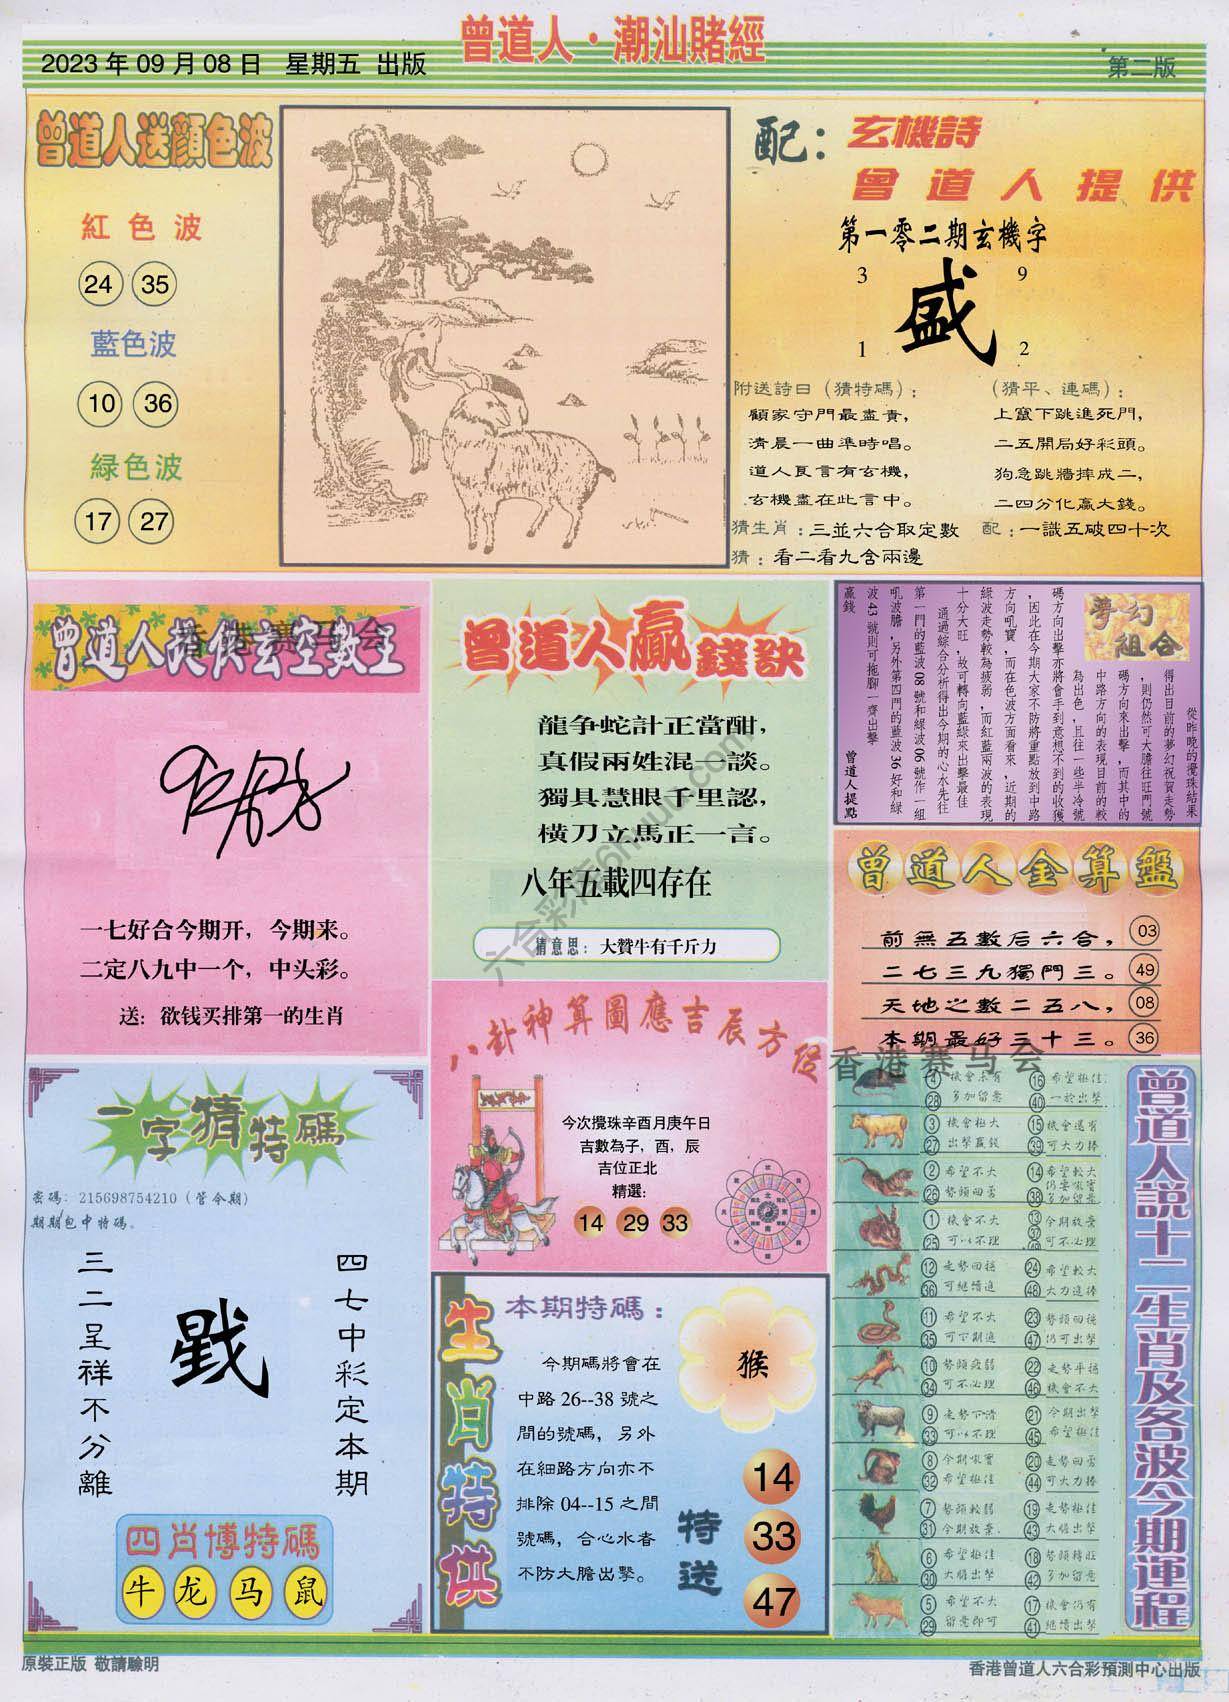 曾道人·潮汕賭經
2023 年 09 月 08 日 星期五 出版
第二版
曾道人送顔色波
紅色波
24 35
藍色波
10 36
緑色波
17 27
配：玄機詩
曾道人提供
第一零二期玄機字
3 9
盛
1 2
附送詩曰（猜特碼）：
顧家守門最盡責，
清晨一曲準時唱。
道人良言有玄機，
玄機盡在此言中。
（猜平、連碼）：
上窰下跳進死門，
二五開局好彩頭。
狗急跳牆摔成二，
二四分化贏大錢。
猜生肖：三並六合取定數 配：一識五破四十次
猜：看二看九含兩邊
曾道人提供玄空數王
香港赛马会
一七好合今期开，今期来。
二定八九中一个，中头彩。
送：欲钱买排第一的生肖
曾道人贏錢訣
龍争蛇計正當酣，
真假兩姓混一談。
獨具慧眼千里認，
橫刀立馬正一言。
八年五載四存在
猜意思：大贊牛有千斤力
六合彩库6huu.com
夢幻組合
從昨晚的攪珠結果
得出目前的夢幻祝賀走勢
，則仍然可大膽往旺門號
碼方向來出擊，而其中的
中路方向的表現目前的較
為出色，且往一些半冷號
碼方向出擊亦將會手到意想不到的收獲
，因此在今期大家不防將重點放到中路
方向吼寶，而在色波方面看來，近期的
綠波走勢較為疲弱，而紅藍兩波的表現
十分大旺，故可轉向藍綠來出擊最佳
通過綜合分析得出今期的心水先往
第一門的藍波 08 號和綠波 06 號作一組
吼波膽，另外第四門的藍波 36 好和綠
波 43 號則可拖腳一齊出擊
曾道人提點
贏錢
曾道人金算盤
前無五數后六合， 03
二七三九獨門三。 49
天地之數二五八， 08
本期最好三十三。 36
香港赛马会
八卦神算圖應吉辰方位
今次攪珠辛酉月庚午日
吉數為子，酉，辰
吉位正北
精選：
14 29 33
一字猜特碼
密碼：215698754210（管令期）
期期包中特碼。
三二呈祥不分離
戥
四七中彩定本期
四肖博特碼
牛 龙 马 鼠
生肖特供
本期特碼：
猴
今期碼將會在
中路 26--38 號之
間的號碼，另外
在細路方向亦不
排除 04--15 之間
號碼，合心水者
不防大膽出擊。
特送
14
33
47
曾道人説十二生肖及各波今期運程
4 28 機會未有 多加留意 16 40 希望極佳 一於出擊
3 27 機會極大 出擊贏錢 15 39 機會還有 可大力捧
2 26 希望不大 勢頭回勇 14 38 希望較大 仍要吼實 多加留意
1 25 機會不大 可以不理 13 37 49 今期放棄 可不必理
12 36 走勢回穩 可繼續進 24 48 希望較大 大力追捧
11 35 希望不大 可下期追 23 47 勢頭回穩 仍可出擊
10 34 勢頭疲弱 可不必理 22 46 走勢平穩 機會不大
9 33 走勢下滑 可以不理 21 45 今期出擊 希望極佳
8 32 今期吼實 希望極佳 20 44 走勢回勇 可大力捧
7 31 勢頭較弱 今期放棄 19 43 走勢極佳 大膽出擊
6 30 希望極佳 大膽出擊 18 42 勢頭轉旺 多加留意
5 29 希望不大 留意即可 17 41 機會仍有 繼續出擊
原裝正版 敬請驗明
香港曾道人六合彩預測中心出版